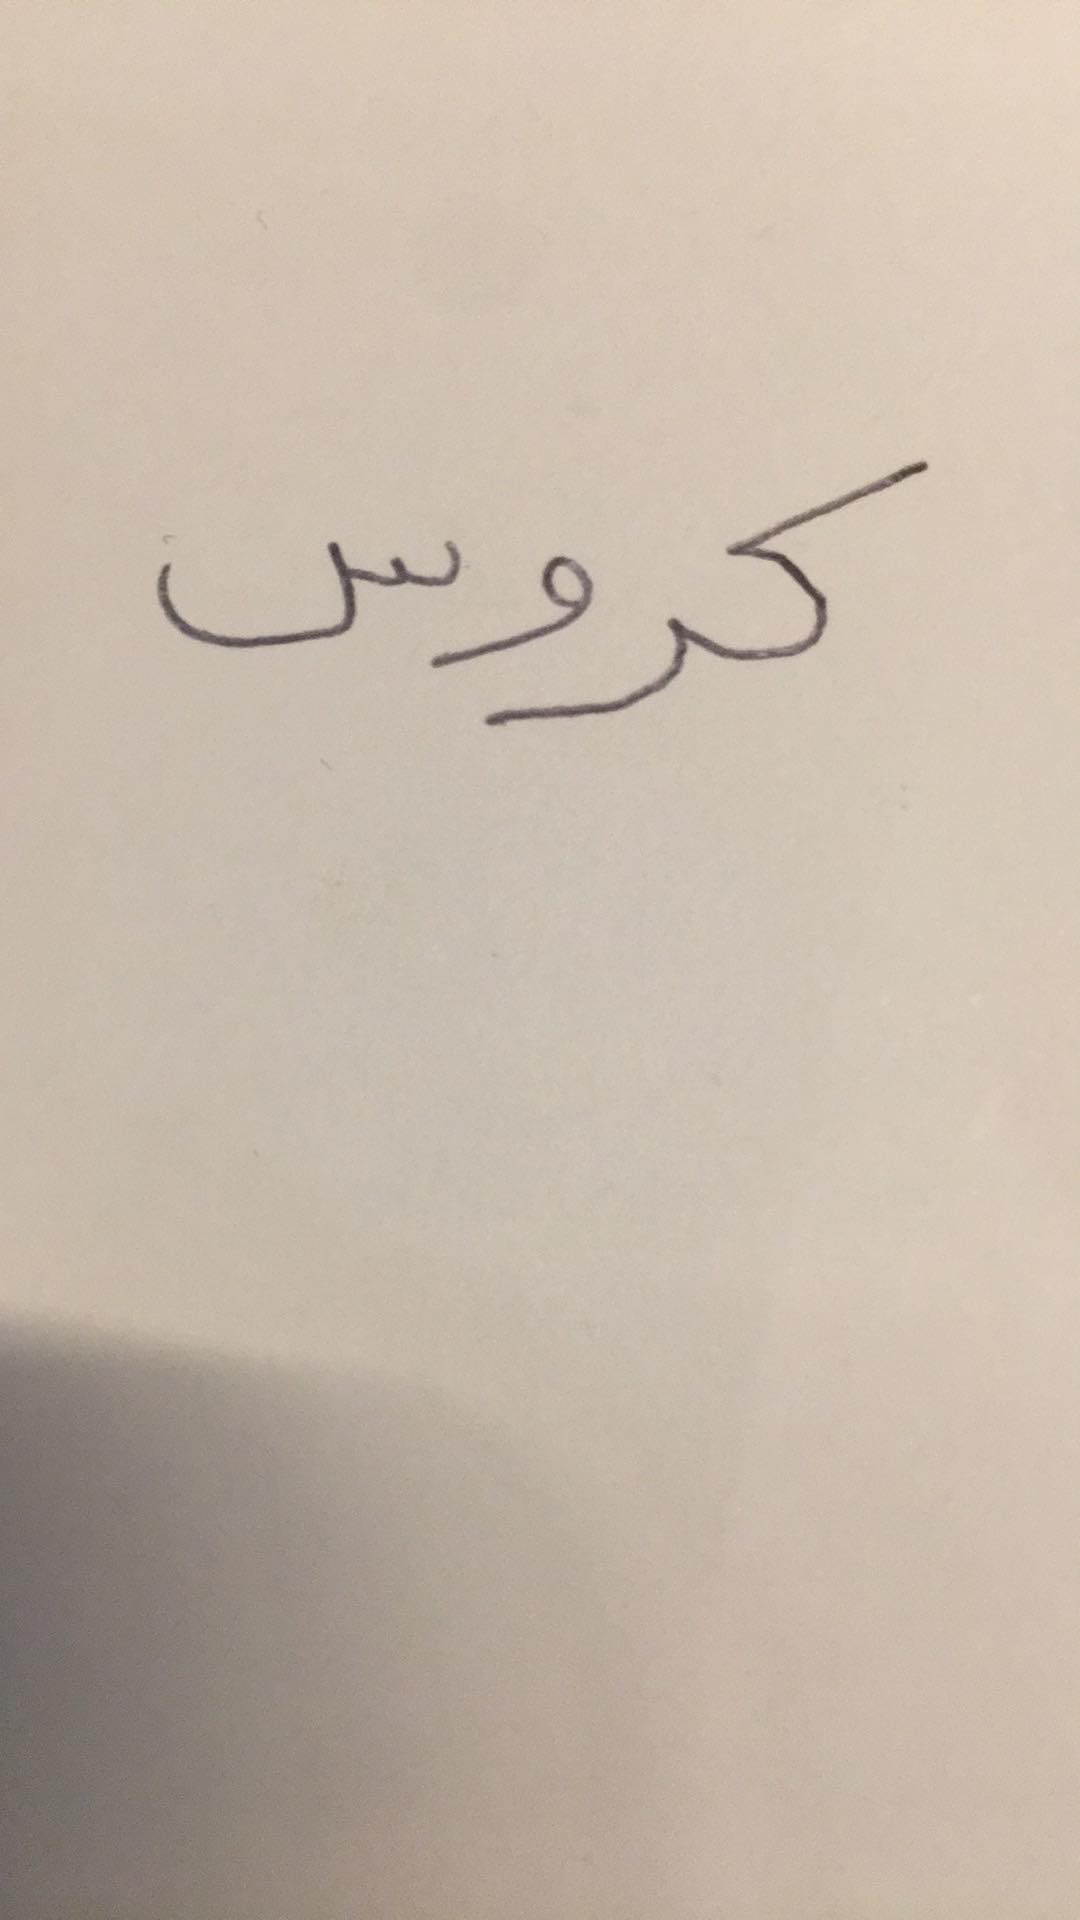 كروس